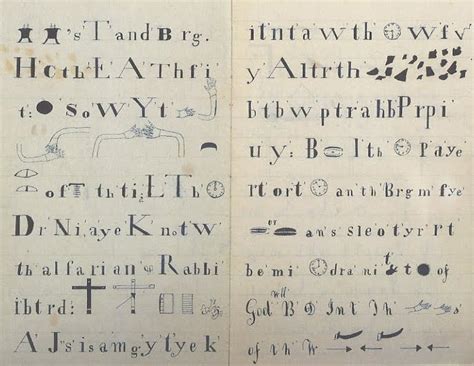 's T and B r g.
H c th E A Th f i
t: S o W Y t
o f T th t i; L T h
D r N i, a y e K n o t w
th a l f a r i a n R a b b i
i b t r d:
A J s i s a m g y t y e k
i t n t a w t h O w f v
y A l t r t h
b t b w p t r a h b P r p i
u y: B I t h P a y e
r t o r t a n t h B r g m f y e
or a n s l e o t y r t
b e m i d r a n i t o f
will
God B D I n t I h s
of t h W